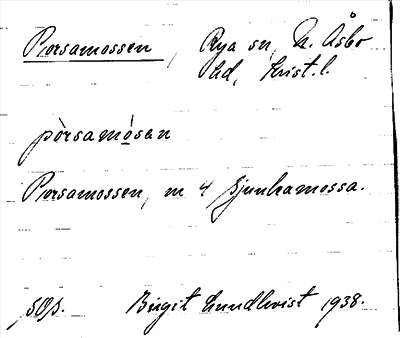 Porsamossen, Rya sn, N. Åsbo
hd, Krist. l.
pòrsamósan
Porsamossen, m 4 Sjunkamossa.
sop. Birgit Lundkvist 1938.